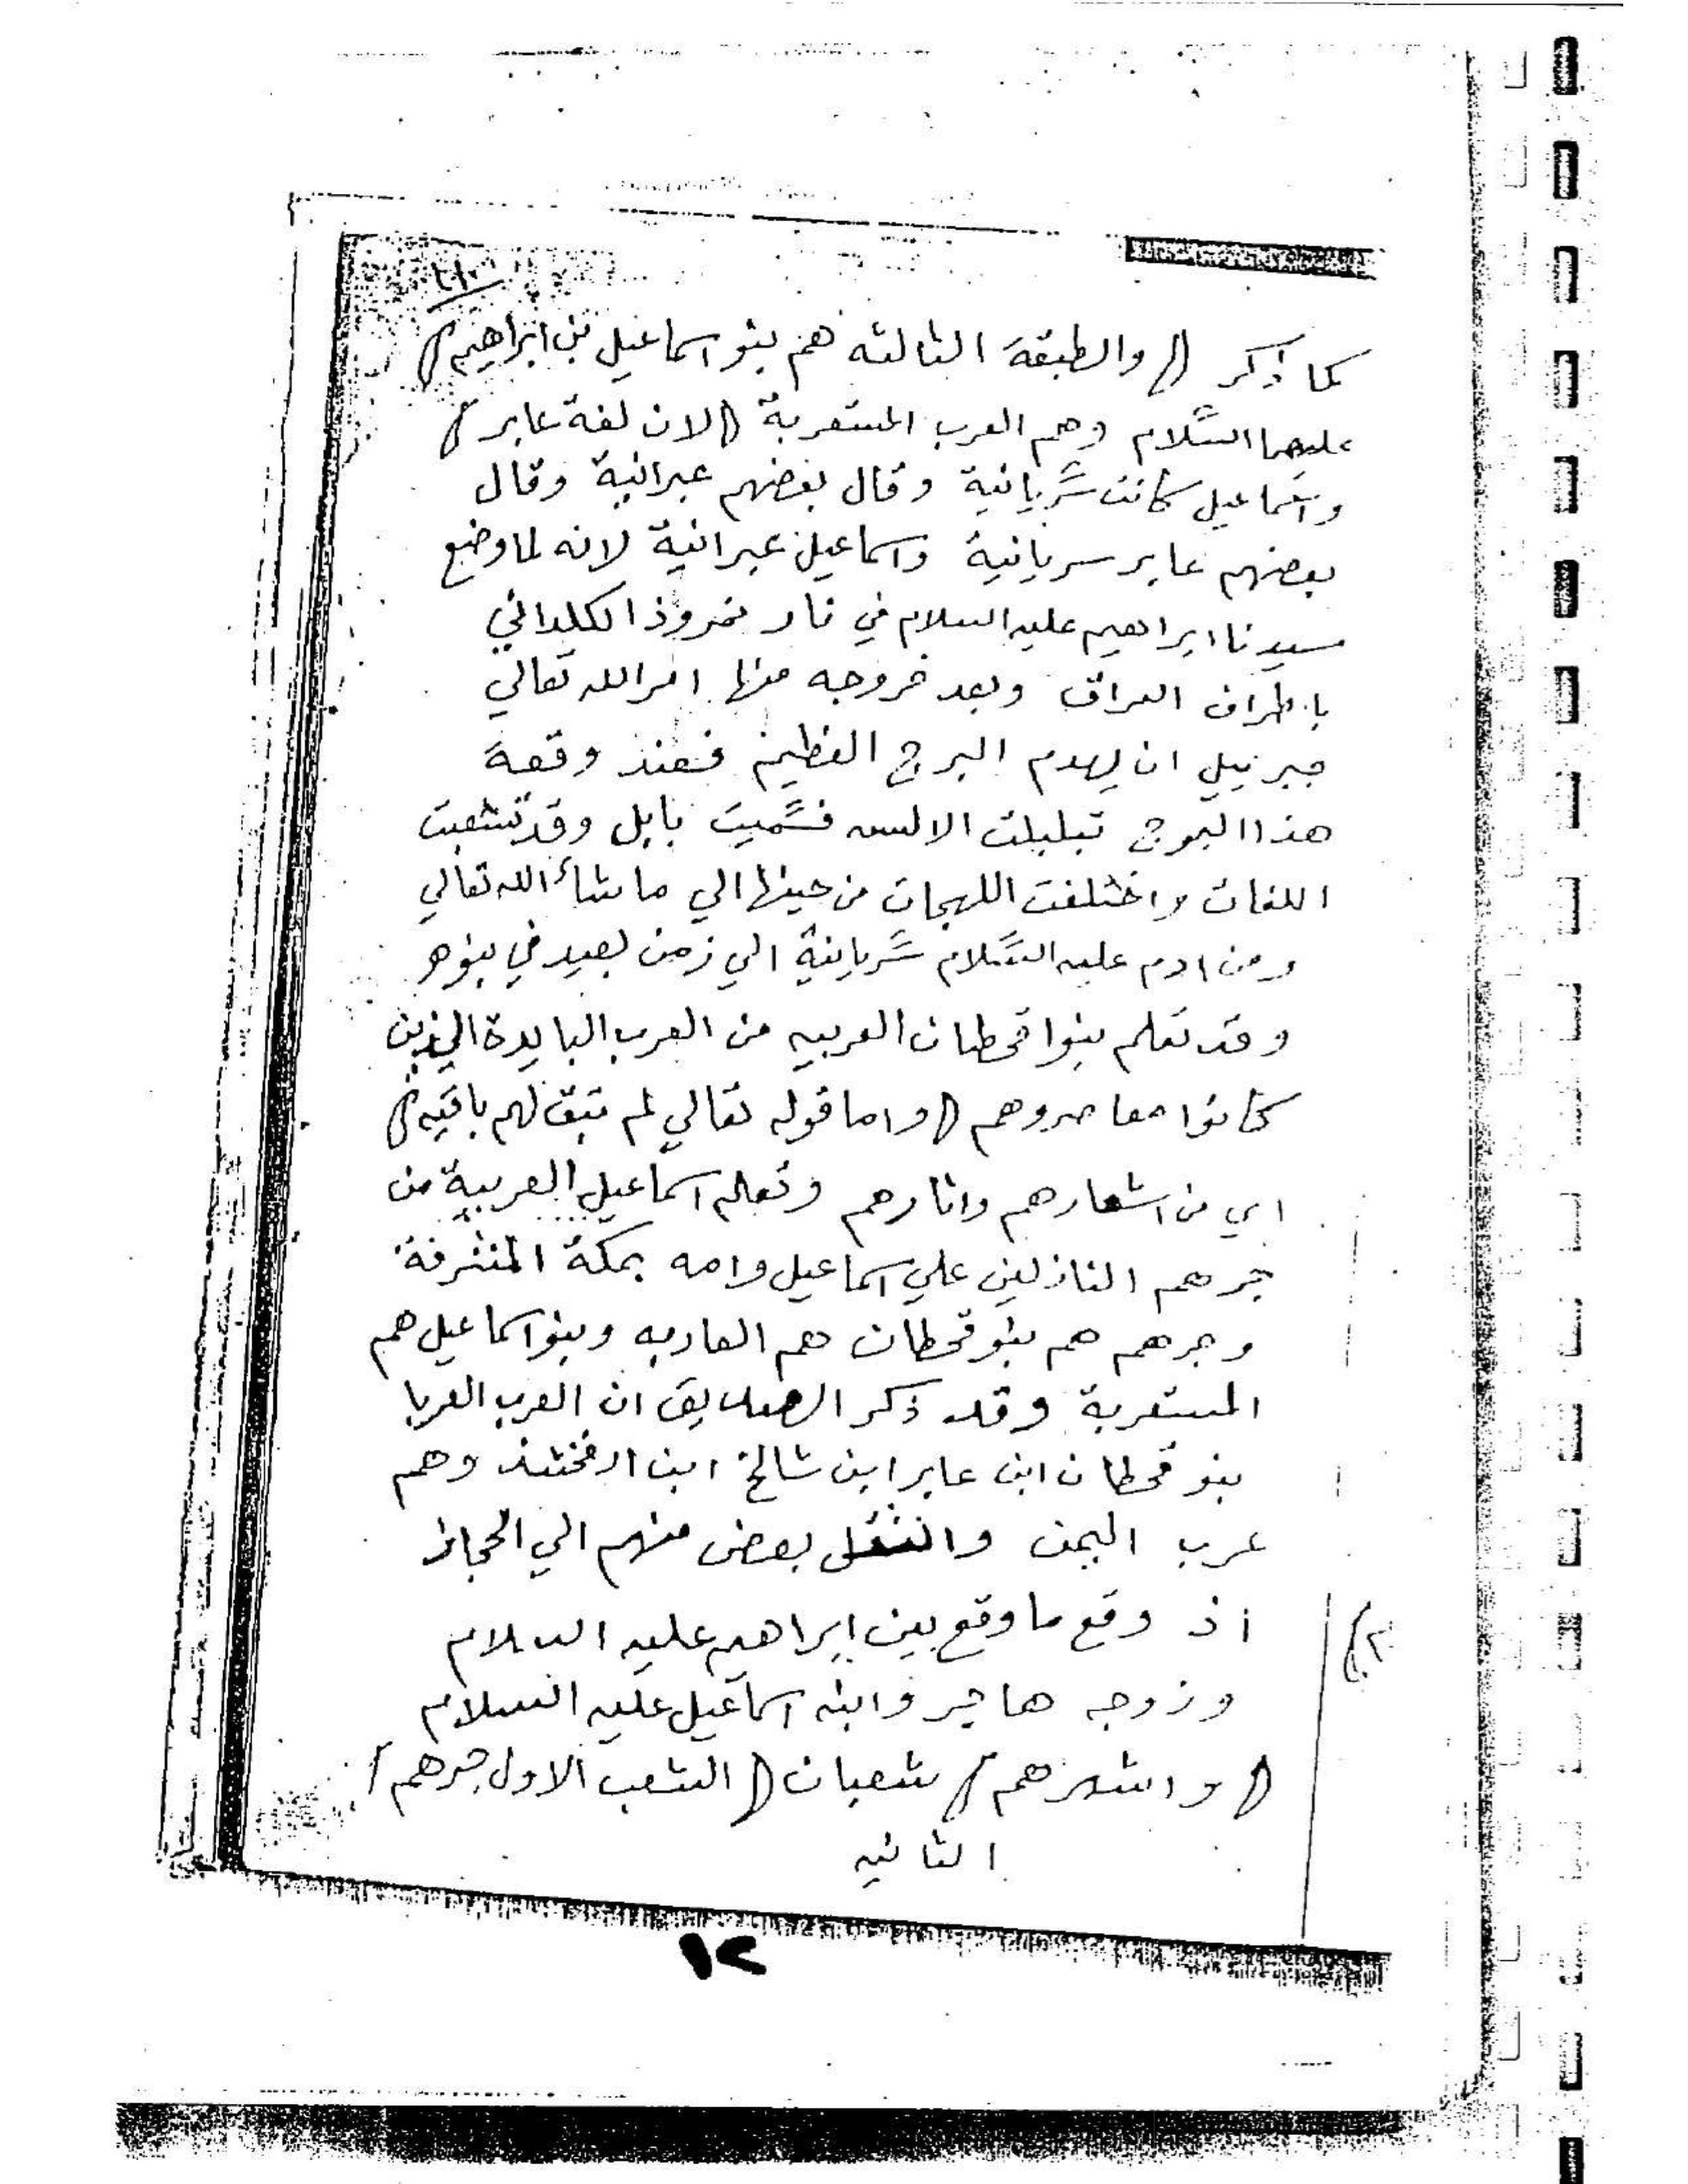 كما ذكر () والطبقة الثالثه هم بنو اسماعيل بن ابراهيم ()
عليهما السلام وهم العرب المستعربة () لان لغة عابر ()
واسماعيل كانت سريانية وقال بعضهم عبرانية وقال
بعضهم عابر سريانية واسماعيل عبرانية لانه لما وضع
سيدنا ابراهيم عليه السلام في نار نمروذ الكلداني
باطراف العراق وبعد خروجه منها امر الله تعالي
جبرئيل ان يهدم البرج العظيم فعند وقعة
هذا البرج تبلبلت الالسن فسميت بابل وقد تشعبت
اللغات واختلفت اللهجات من حينها الي ما شاء الله تعالي
ومن ادم عليه السلام سريانية الي زمن بعيد في بنوه
وقد تعلم بنوا قحطان العربيه من العرب البايدة الذين
كانوا معاصروهم () واما قوله تعالي لم تبق لهم باقيه ()
اي من اشعارهم واثارهم وتعلم اسماعيل العربية من
جرهم النازلين علي اسماعيل وامه بمكة المشرفة
وجرهم هم بنو قحطان هم العاربه وبنو اسماعيل هم
المستعربة وقد ذكر ان العرب العربا
بنو قحطان ابن عابر ابن شالخ ابن ارفخشذ وهم
عرب اليمن وانتقل بعض منهم الي الحجاز
اذ وقع ما وقع بين ابراهيم عليه السلام
وزوجه هاجر وابنه اسماعيل عليه السلام
() واشهرهم () شعبان () الشعب الاول جرهم (
الثانيه
١٢